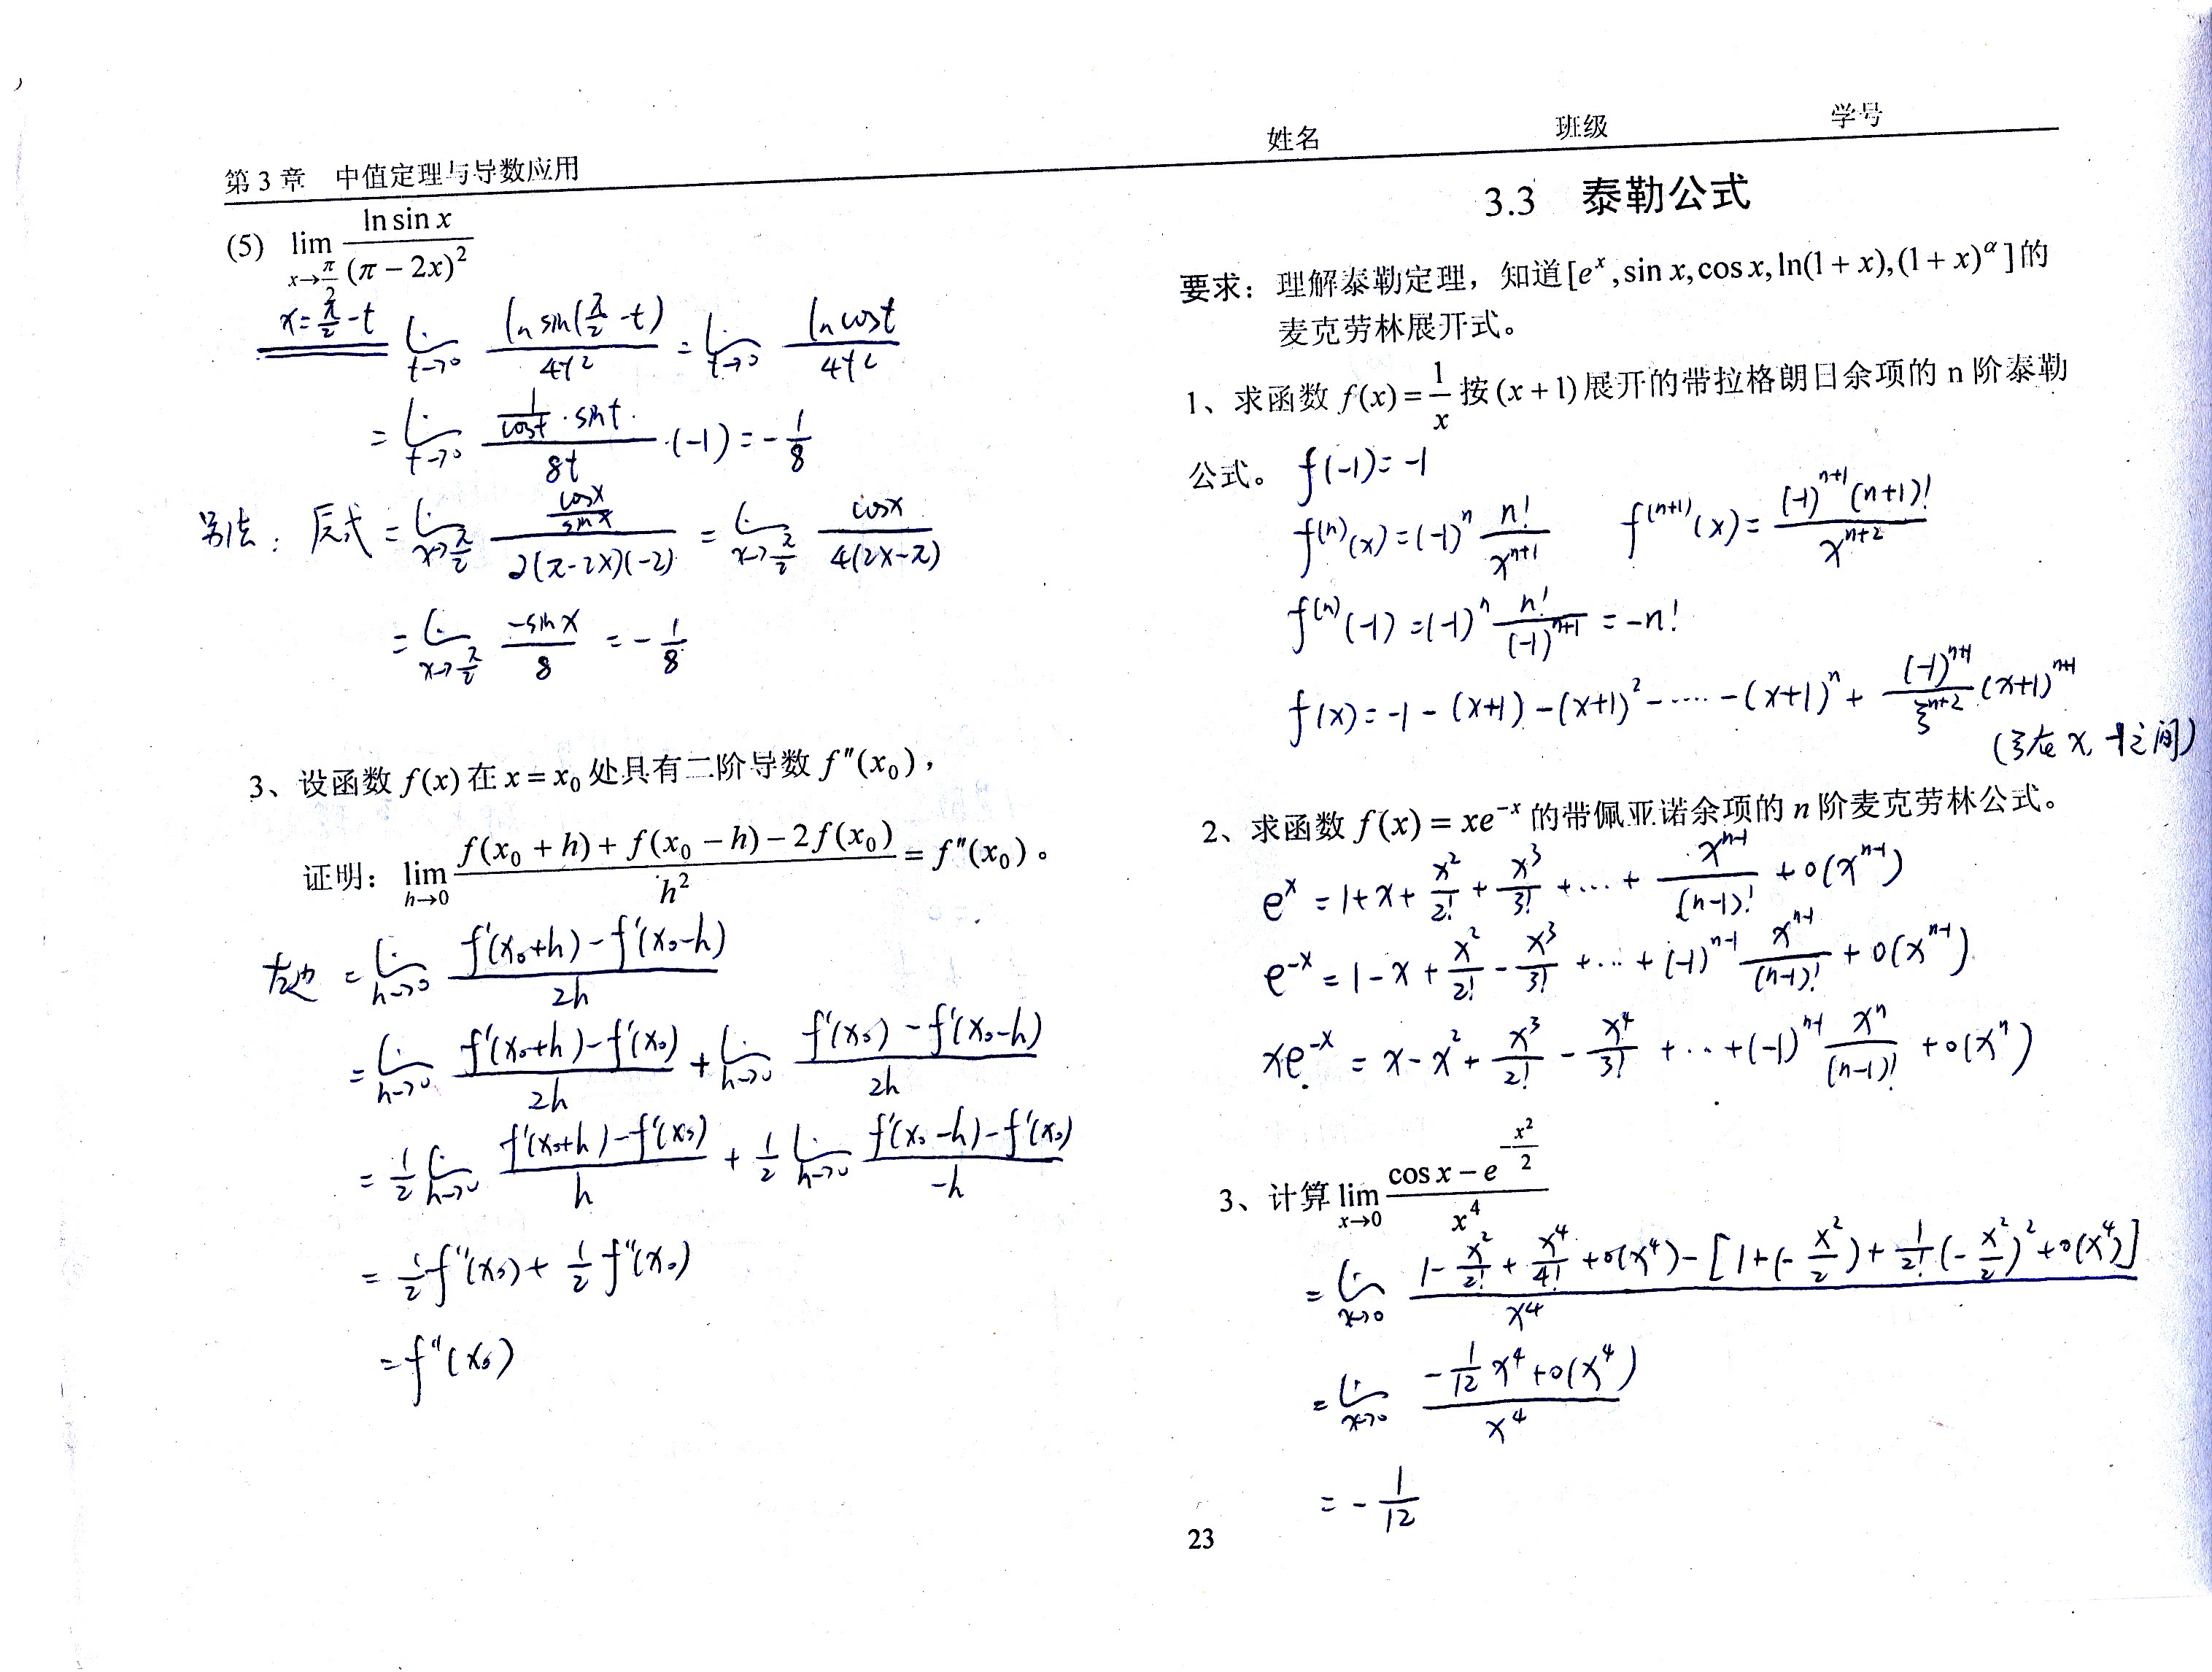 姓名 班级 学号
第3章 中值定理与导数应用
(5) lim_{x→π/2} (ln sin x)/(π − 2x)²
x = π/2 − t  lim_{t→0} (ln sin(π/2 − t))/(4t²) = lim_{t→0} (ln cos t)/(4t²)
= lim_{t→0} (1/cos t · sin t)/(8t) · (−1) = −1/8
另法: 原式 = lim_{x→π/2} (cos x/sin x)/(2(π−2x)(−2)) = lim_{x→π/2} cos x/(4(2x−π))
= lim_{x→π/2} (−sin x)/8 = −1/8
3、设函数 f(x) 在 x = x₀ 处具有二阶导数 f″(x₀),
证明: lim_{h→0} (f(x₀ + h) + f(x₀ − h) − 2f(x₀))/h² = f″(x₀)。
左边 = lim_{h→0} (f′(x₀+h) − f′(x₀−h))/(2h)
= lim_{h→0} (f′(x₀+h) − f′(x₀))/(2h) + lim_{h→0} (f′(x₀) − f′(x₀−h))/(2h)
= 1/2 lim_{h→0} (f′(x₀+h) − f′(x₀))/h + 1/2 lim_{h→0} (f′(x₀−h) − f′(x₀))/(−h)
= 1/2 f″(x₀) + 1/2 f″(x₀)
= f″(x₀)
3.3 泰勒公式
要求: 理解泰勒定理, 知道[eˣ, sin x, cos x, ln(1 + x), (1 + x)^α]的
麦克劳林展开式。
1、求函数 f(x) = 1/x 按 (x + 1) 展开的带拉格朗日余项的 n 阶泰勒
公式。 f(−1) = −1
f^(n)(x) = (−1)ⁿ n!/x^(n+1)  f^(n+1)(x) = (−1)^(n+1)(n+1)!/x^(n+2)
f^(n)(−1) = (−1)ⁿ n!/(−1)^(n+1) = −n!
f(x) = −1 − (x+1) − (x+1)² − ····· − (x+1)ⁿ + (−1)^(n+1)/ξ^(n+2) (x+1)^(n+1)
(ξ在 x, −1之间)
2、求函数 f(x) = xe^(−x) 的带佩亚诺余项的 n 阶麦克劳林公式。
eˣ = 1 + x + x²/2! + x³/3! + ··· + x^(n−1)/(n−1)! + o(x^(n−1))
e^(−x) = 1 − x + x²/2! − x³/3! + ··· + (−1)^(n−1) x^(n−1)/(n−1)! + o(x^(n−1))
xe^(−x) = x − x² + x³/2! − x⁴/3! + ··· + (−1)^(n−1) xⁿ/(n−1)! + o(xⁿ)
3、计算 lim_{x→0} (cos x − e^(−x²/2))/x⁴
= lim_{x→0} (1 − x²/2! + x⁴/4! + o(x⁴) − [1 + (−x²/2) + 1/2! (−x²/2)² + o(x⁴)])/x⁴
= lim_{x→0} (−1/12 x⁴ + o(x⁴))/x⁴
= −1/12
23